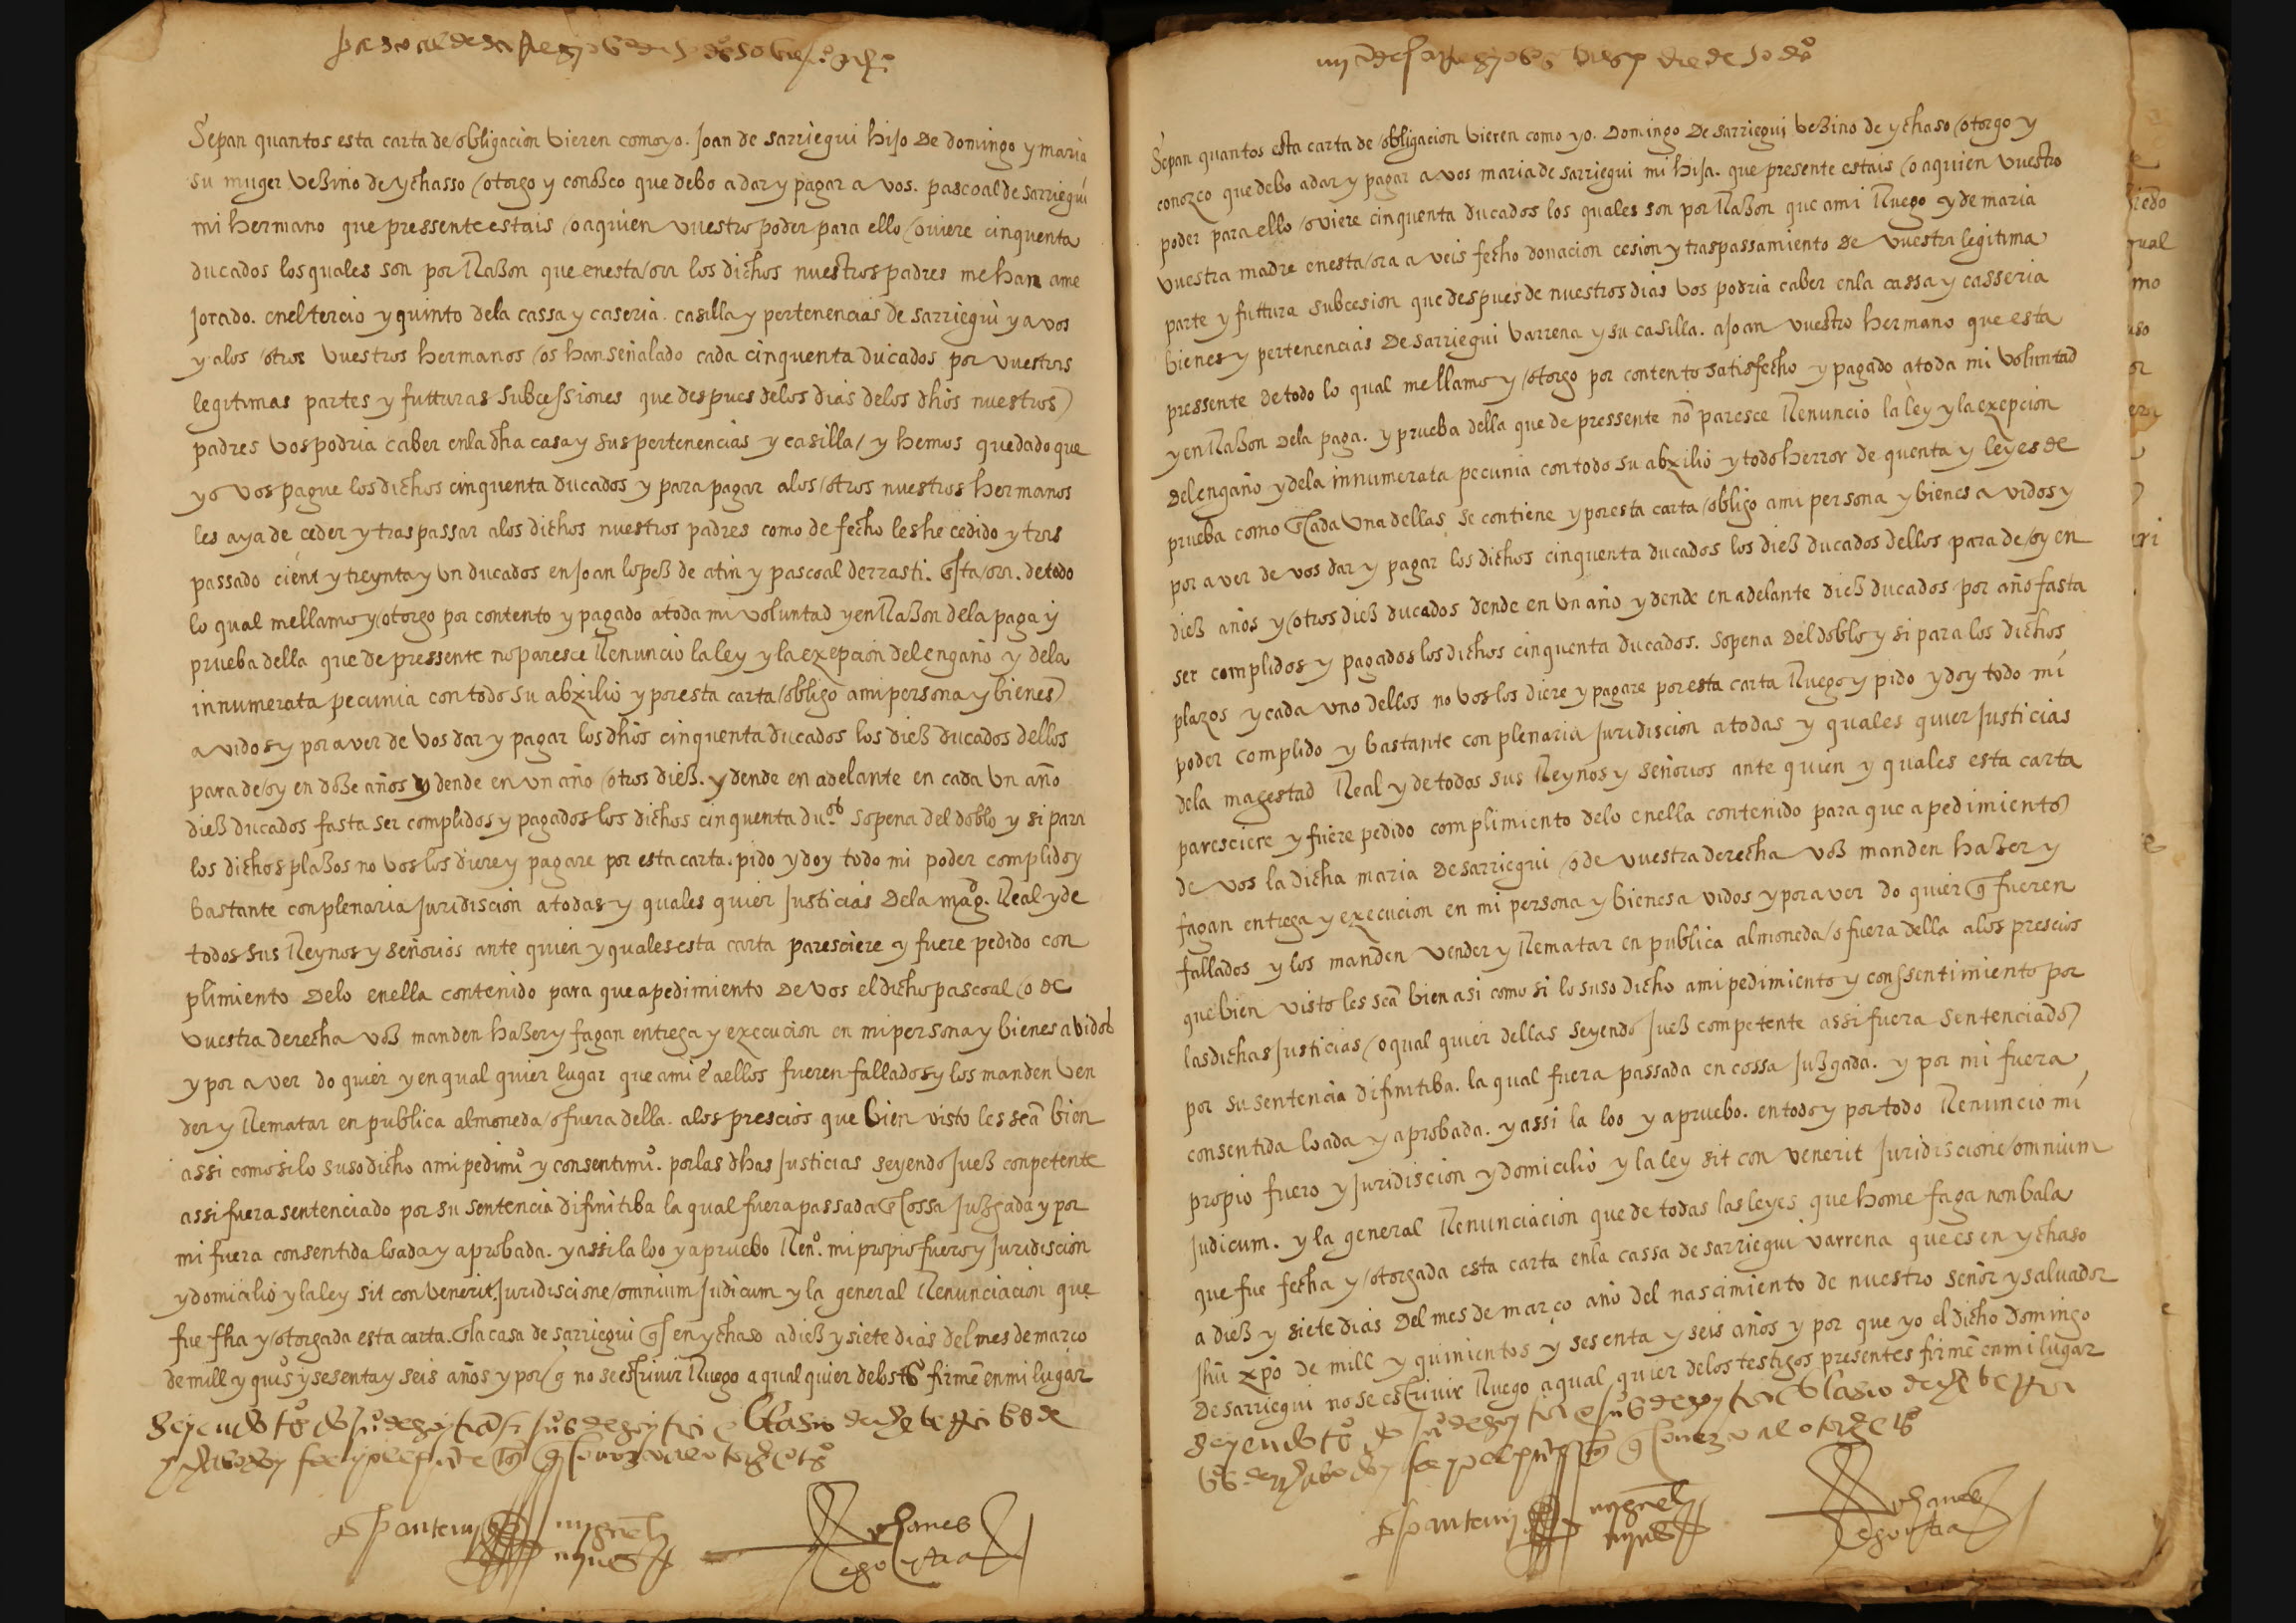 Sepan quantos esta carta de obligacion vieren como yo. Joan de sarriegui hijo de domingo y maria
su muger vezino de ychasso otorgo y conozco que debo a dar y pagar a vos. pascoal de sarriegui
mi hermano que pressente estais o a quien vuestro poder para ello oviere cinquenta
ducados los quales son por Razon que en esta ora los dichos nuestros padres me han ame
jorado. en el tercio y quinto dela cassa y caseria. casilla y pertenencias de sarriegui y a vos
y alos otros vuestros hermanos os han señalado cada cinquenta ducados por vuestras
legitimas partes y futturas subcessiones que despues delos dias delos dhos nuestros
padres vos podria caber enla dha casa y sus pertenencias y casilla / y hemos quedado que
yo vos pague los dichos cinquenta ducados y para pagar alos otros nuestros hermanos
les aya de ceder y traspassar alos dichos nuestros padres como de fecho les he cedido y tras
passado cient y treynta y un ducados en Joan lopez de atin y pascoal derrasti. esta ora. de todo
lo qual me llamo y otorgo por contento y pagado a toda mi voluntad y en Razon dela paga y
prueba della que de pressente no paresce Renuncio la ley y la exepcion del engaño y dela
innumerata pecunia con todo su abxilio y por esta carta obligo a mi persona y bienes
avidos y por aver de vos dar y pagar los dhos cinquenta ducados los diez ducados dellos
para de oy en doze años y dende en un año otros diez. y dende en adelante en cada un año
diez ducados fasta ser complidos y pagados los dichos cinquenta du.os sopena del doblo y si para
los dichos plazos no vos los diere y pagare por esta carta. pido y doy todo mi poder complido y
bastante con plenaria Juridiscion a todas y quales quier Justicias dela mag. Real y de
todos sus Reynos y señorios ante quien y quales esta carta paresciere y fuere pedido con
plimiento delo enella contenido para que a pedimiento de vos el dicho pascoal o de
vuestra derecha voz manden hazer y fagan entrega y execucion en mi persona y bienes avidos
y por aver do quier y en qual quier lugar que a mi e a ellos fueren fallados y los manden ven
der y Rematar en publica almoneda o fuera della. alos prescios que bien visto les sea bien
assi como si lo suso dicho a mi pedimio y consentimio. por las dhas Justicias seyendo Juez conpetente
assi fuera sentenciado por su sentencia difinitiba la qual fuera passada en cossa Juzgada y por
mi fuera consentida loada y aprobada. y assi la loo y apruebo Reno. mi propio fuero y Juridiscion
y domicilio y la ley sit convenerit Juridiscione omnium Judicum y la general Renunciacion que
fue fha y otorgada esta carta. en la casa de sarriegui q es en ychaso a diez y siete dias del mes de março
de mill y quios y sesenta y seis años y por q no se escrivir Ruego a qual quier delos tos firme en mi lugar
miguel
Johanes
de goytia
Sepan quantos esta carta de obligacion vieren como yo. Domingo de sarriegui vezino de ychaso otorgo y
conozco que debo a dar y pagar a vos maria de sarriegui mi hija. que presente estais o a quien vuestro
poder para ello oviere cinquenta ducados los quales son por Razon que a mi Ruego y de maria
vuestra madre en esta ora aveis fecho donacion cesion y traspassamiento de vuestra legitima
parte y futtura subcesion que despues de nuestros dias vos podria caber enla cassa y casseria
bienes y pertenencias de sarriegui varrena y su casilla. a Joan vuestro hermano que esta
pressente de todo lo qual me llamo y otorgo por contento satisfecho y pagado a toda mi voluntad
y en Razon dela paga. y prueba della que de pressente no paresce Renuncio la ley y la exepcion
del engaño y dela innumerata pecunia con todo su abxilio y todo herror de quenta y leyes de
prueba como en cada una dellas se contiene y por esta carta obligo a mi persona y bienes avidos y
por aver de vos dar y pagar los dichos cinquenta ducados los diez ducados dellos para de oy en
diez años y otros diez ducados dende en un año y dende en adelante diez ducados por año fasta
ser complidos y pagados los dichos cinquenta ducados. sopena del doblo y si para los dichos
plazos y cada uno dellos no vos los diere y pagare por esta carta Ruego y pido y doy todo mi
poder complido y bastante con plenaria Juridiscion a todas y quales quier Justicias
dela magestad Real y de todos sus Reynos y señorios ante quien y quales esta carta
paresciere y fuere pedido complimiento delo enella contenido para que a pedimiento
de vos la dicha maria de sarriegui o de vuestra derecha voz manden hazer y
fagan entrega y execucion en mi persona y bienes avidos y por aver do quier q fueren
fallados y los manden vender y Rematar en publica almoneda o fuera della alos prescios
que bien visto les sea bien asi como si lo suso dicho a mi pedimiento y conssentimiento por
las dichas Justicias o qual quier dellas seyendo Juez competente assi fuera sentenciado
por su sentencia difinitiba. la qual fuera passada en cossa Juzgada. y por mi fuera
consentida loada y aprobada. y assi la loo y apruebo. en todo y por todo Renuncio mi
propio fuero y Juridiscion y domicilio y la ley sit convenerit Juridiscione omnium
Judicum. y la general Renunciacion que de todas las leyes que home faga non bala
que fue fecha y otorgada esta carta enla cassa de sarriegui varrena que es en ychaso
a diez y siete dias del mes de março año del nascimiento de nuestro señor y salvador
Jhu xpo de mill y quinientos y sesenta y seis años y por que yo el dicho domingo
de sarriegui no se escrivir Ruego a qual quier delos testigos presentes firme en mi lugar
miguel
Johanes
de goytia